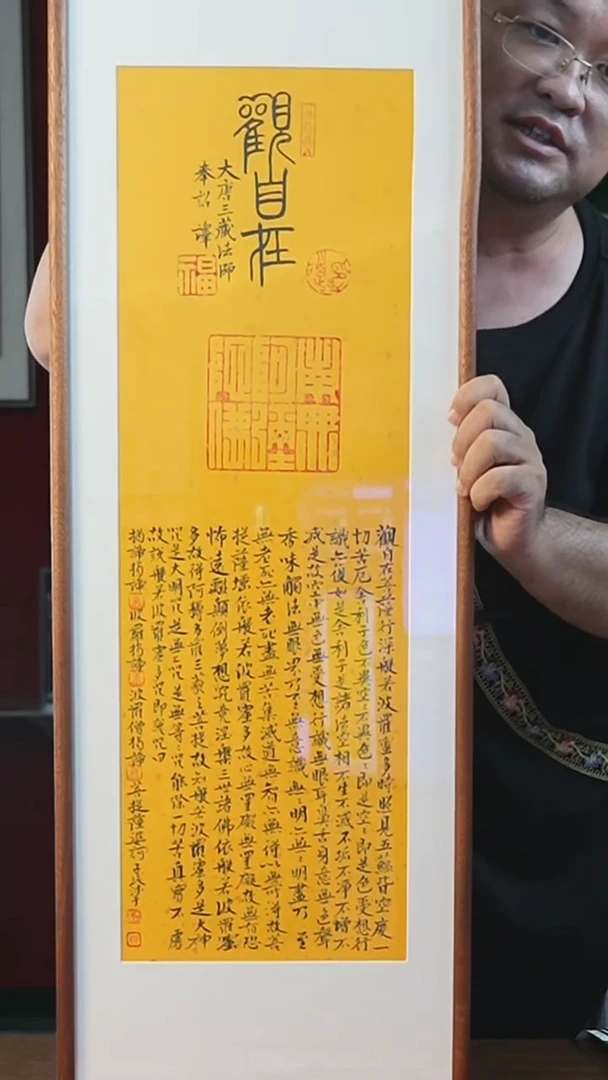 觀自在
大唐三藏法師
奉詔譯
福
南無
阿彌
陀佛
觀自在菩薩行深般若波羅蜜多時照見五蘊皆空度一
切苦厄舍利子色不異空〻不異色〻即是空〻即是色受想行
識亦復如是舍利子是諸法空相不生不滅不垢不淨不增不
減是故空中無色無受想行識無眼耳鼻舌身意無色聲
香味觸法無眼界乃至無意識無〻明亦無〻明盡乃至
無老死亦無老死盡無苦集滅道無智亦無得以無所得故菩
提薩埵依般若波羅蜜多故心無罣礙無罣礙故無有恐
怖遠離顛倒夢想究竟涅槃三世諸佛依般若波羅蜜
多故得阿耨多羅三藐三菩提故知般若波羅蜜多是大神
咒是大明咒是無上咒是無等〻咒能除一切苦真實不虛
故說般若波羅蜜多咒即說咒曰
揭諦揭諦波羅揭諦波羅僧揭諦菩提薩婆訶